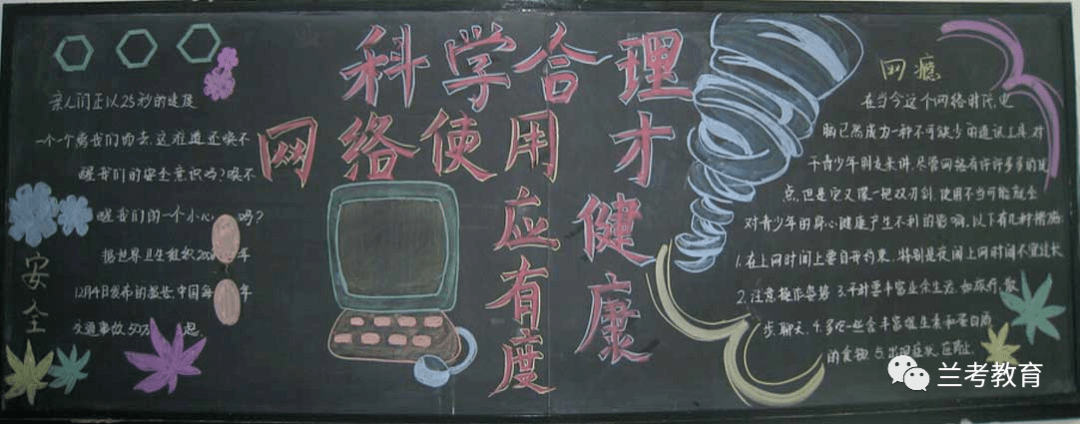 科学合理
网络使用才健康
应有度
安全
亲人们正以25秒的速度
一个个离我们而去,这难道还唤不
醒我们的安全意识吗?唤不
醒我们的一个小心 吗?
据世界卫生组织200 年
12月4日发布的 中国每 年
交通事故50万 起
网瘾
在当今这个网络时代,电
脑已然成为一种不可缺少的通讯工具,对
于青少年朋友来讲,尽管网络有许许多多的优
点,但是它又像一把双刃剑,使用不当可能就会
对青少年的身心健康产生不利的影响,以下有几种措施
1.在上网时间上要自我约束,特别是夜间上网时间不宜过长
2.注意操作姿势 3.平时要丰富业余生活,如旅行,散
步,聊天, 4.多吃一些含丰富维生素和蛋白质
的食物 5.出现症状,应
兰考教育